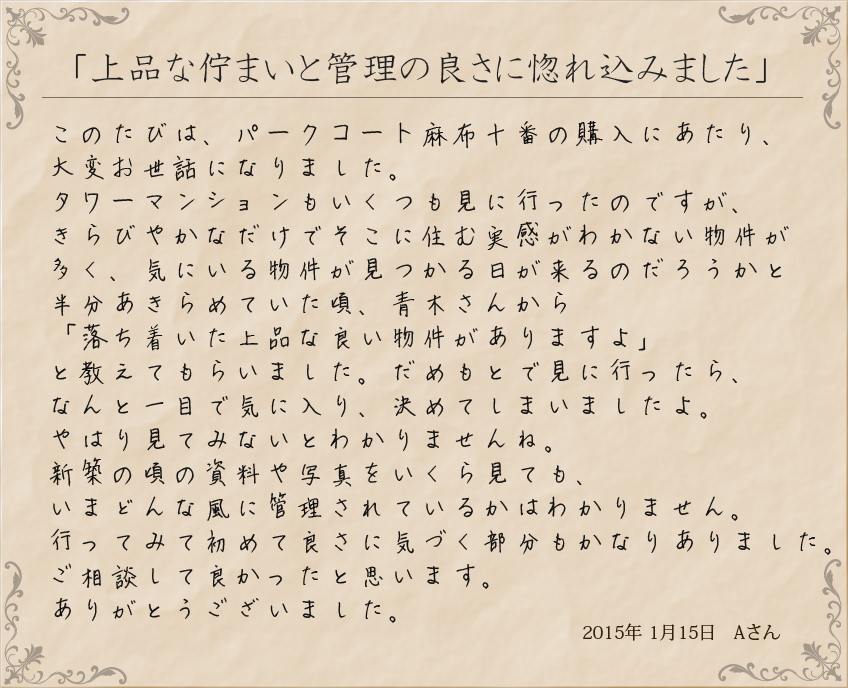 「上品な佇まいと管理の良さに惚れ込みました」
このたびは、パークコート麻布十番の購入にあたり、
大変お世話になりました。
タワーマンションもいくつも見に行ったのですが、
きらびやかなだけでそこに住む実感がわかない物件が
多く、気にいる物件が見つかる日が来るのだろうかと
半分あきらめていた頃、青木さんから
「落ち着いた上品な良い物件がありますよ」
と教えてもらいました。だめもとで見に行ったら、
なんと一目で気に入り、決めてしまいましたよ。
やはり見てみないとわかりませんね。
新築の頃の資料や写真をいくら見ても、
いまどんな風に管理されているかはわかりません。
行ってみて初めて良さに気づく部分もかなりありました。
ご相談して良かったと思います。
ありがとうございました。
2015年 1月15日　Aさん